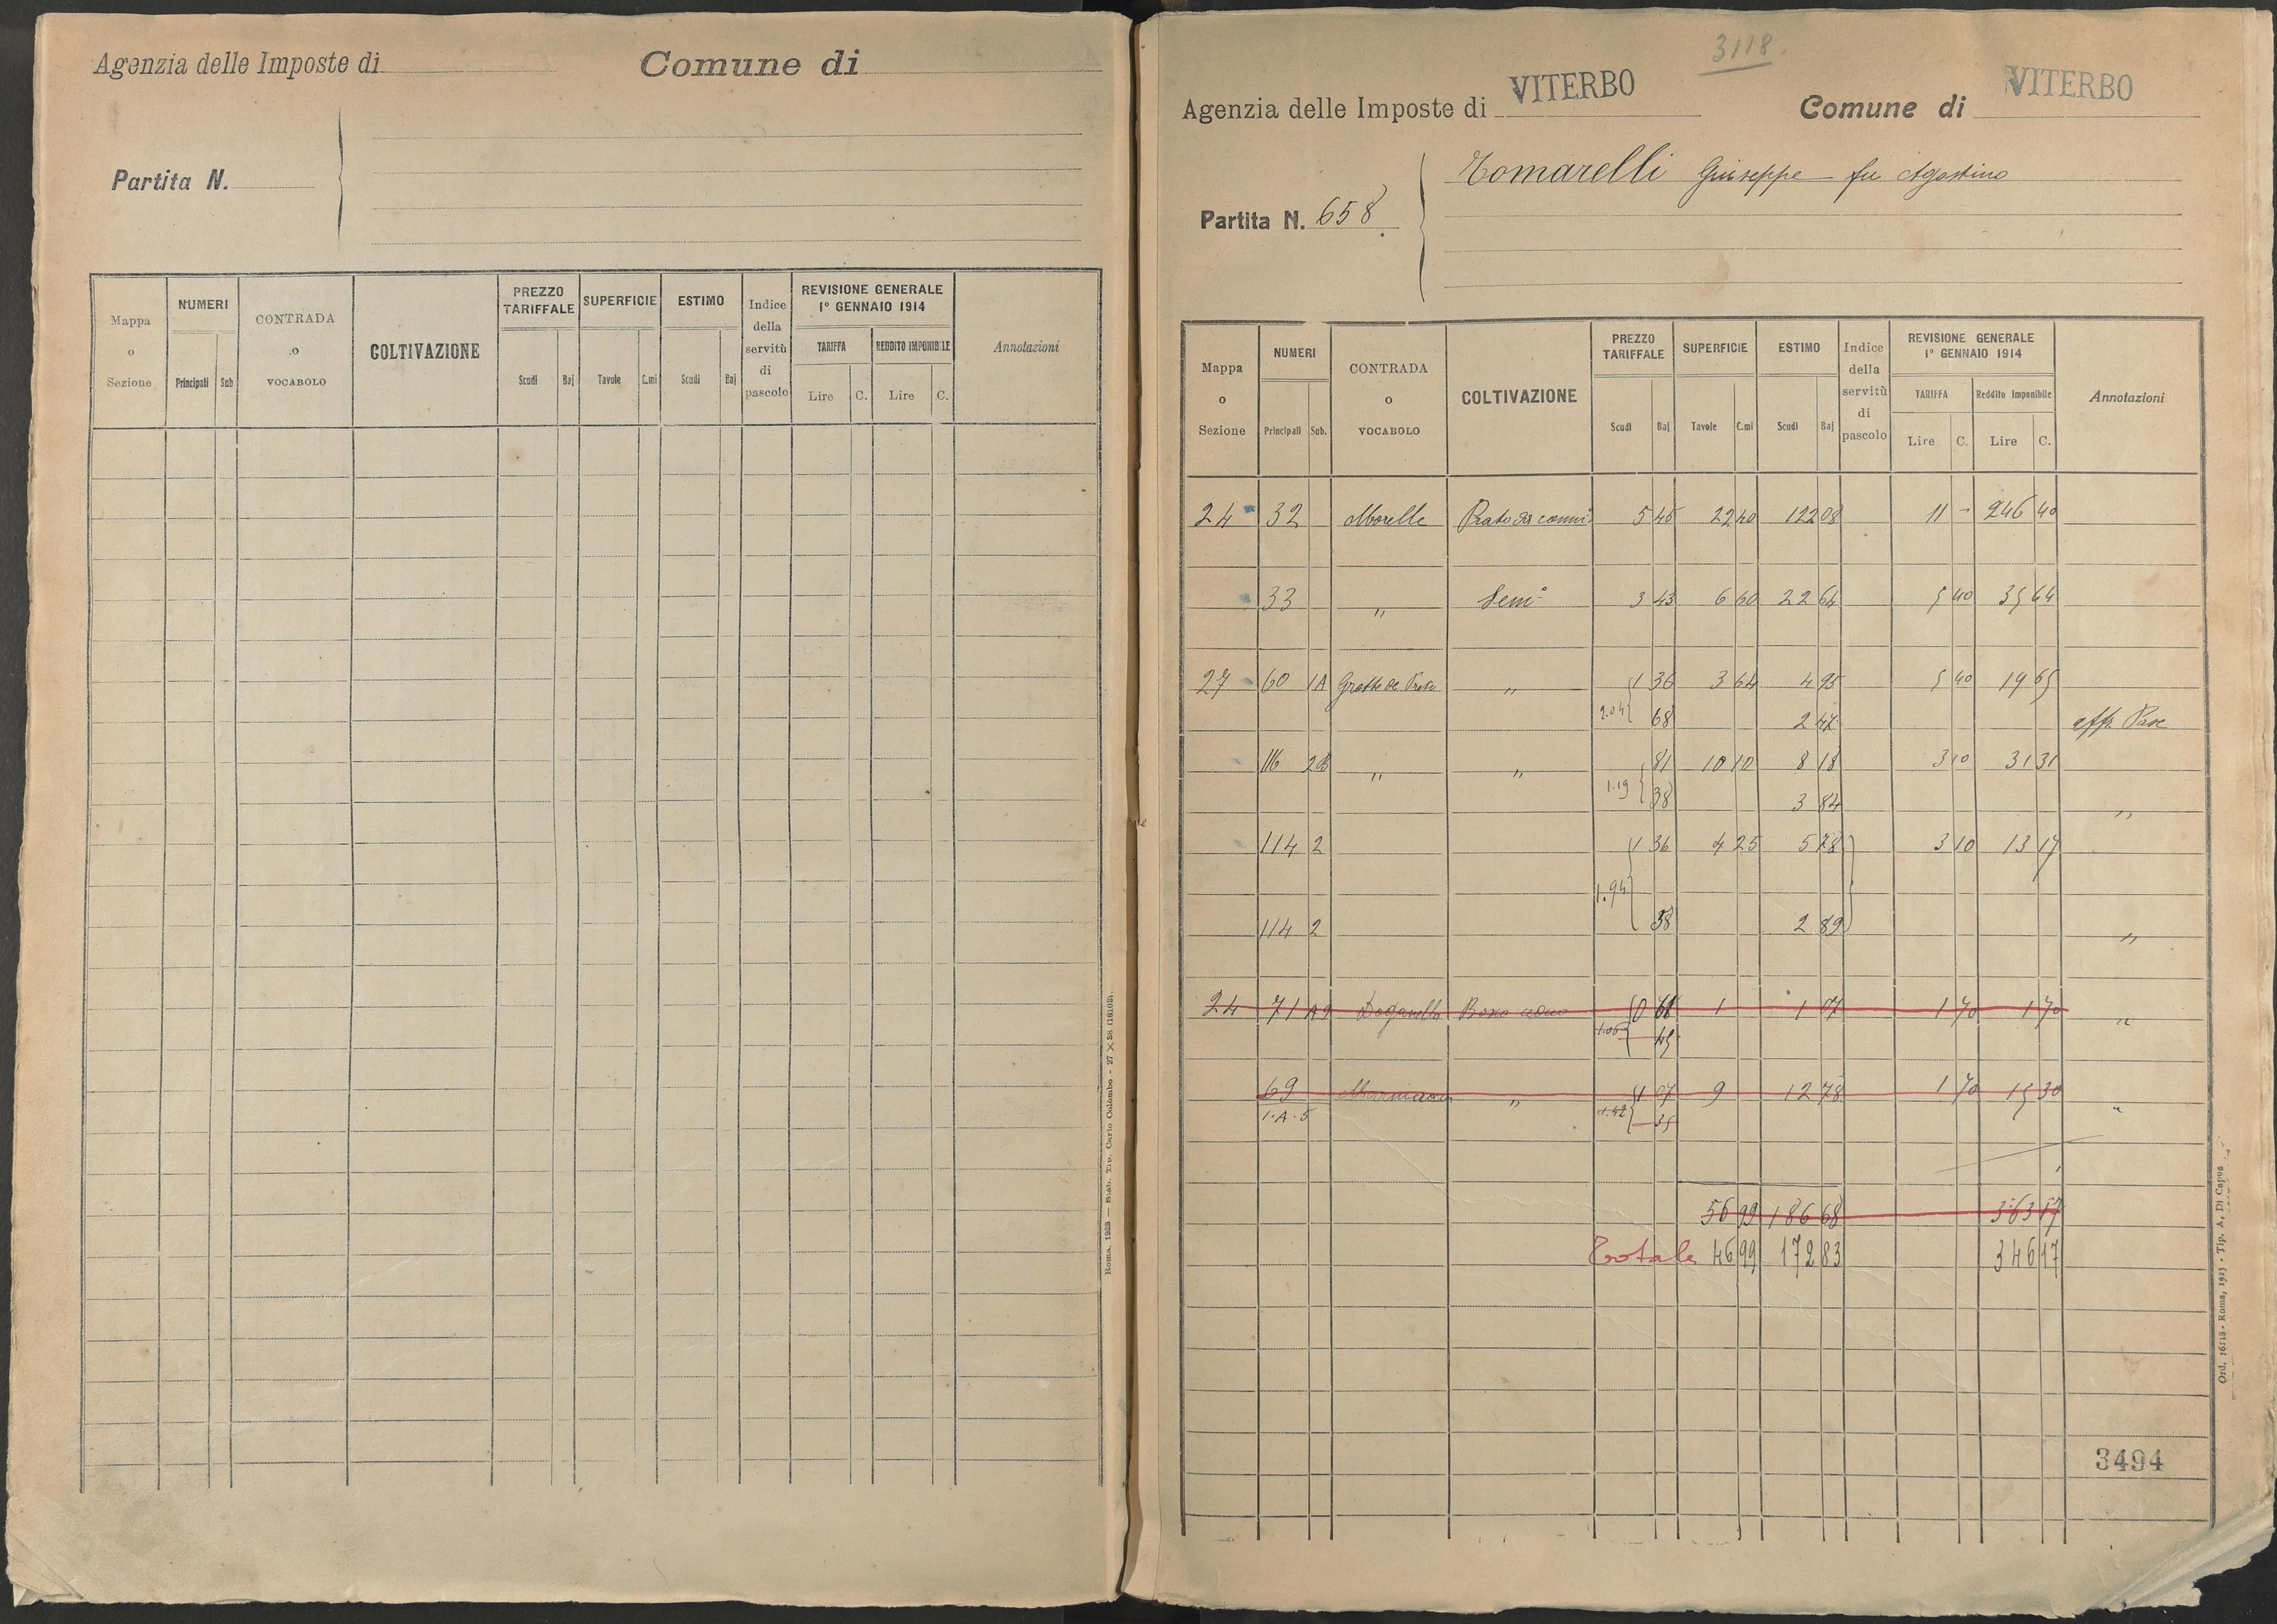 Agenzia delle Imposte di Comune di
Partita N.
Mappa o Sezione NUMERI Principali Sub CONTRADA o VOCABOLO COLTIVAZIONE PREZZO TARIFFALE Scudi Baj SUPERFICIE Tavole C.mi ESTIMO Scudi Baj Indice della servitù di pascolo REVISIONE GENERALE 1° GENNAIO 1914 TARIFFA Lire C. REDDITO IMPONIBILE Lire C. Annotazioni
Roma, 1923 — Stab. Tip. Carlo Colombo - 27 X 38 (16103).
3118.
Agenzia delle Imposte di VITERBO Comune di VITERBO
Tomarelli Giuseppe fu Agostino
Partita N. 658
Mappa o Sezione NUMERI Principali Sub. CONTRADA o VOCABOLO COLTIVAZIONE PREZZO TARIFFALE Scudi Baj SUPERFICIE Tavole C.mi ESTIMO Scudi Baj Indice della servitù di pascolo REVISIONE GENERALE 1° GENNAIO 1914 TARIFFA Lire C. Reddito Imponibile Lire C. Annotazioni
24 32 Morelle Prato 5 45 22 40 122 08 11 - 246 40
33 " Sem° 3 43 6 60 22 64 5 40 35 64
27 60 1A Grotte " 1 36 3 64 4 95 5 40 19 65
2.04 68 2 47 aff. Pasc
116 2B " " 81 10 10 8 18 3 10 31 31
1.19 38 3 84 "
114 2 1 36 4 25 5 78 3 10 13 17
1.94
114 2 58 2 89 "
24 71 A9 Doganella Bosco ceduo 0 61 1 1 07 1 70 1 70 "
1.06 45
69 " 1 07 9 12 78 1 70 15 30 "
1.A.5 1.42 35
56 99 186 68 363 17
Totale 46 99 172 83 346 17
3494
Ord. 16113 - Roma, 1923 - Tip. A. Di Capua